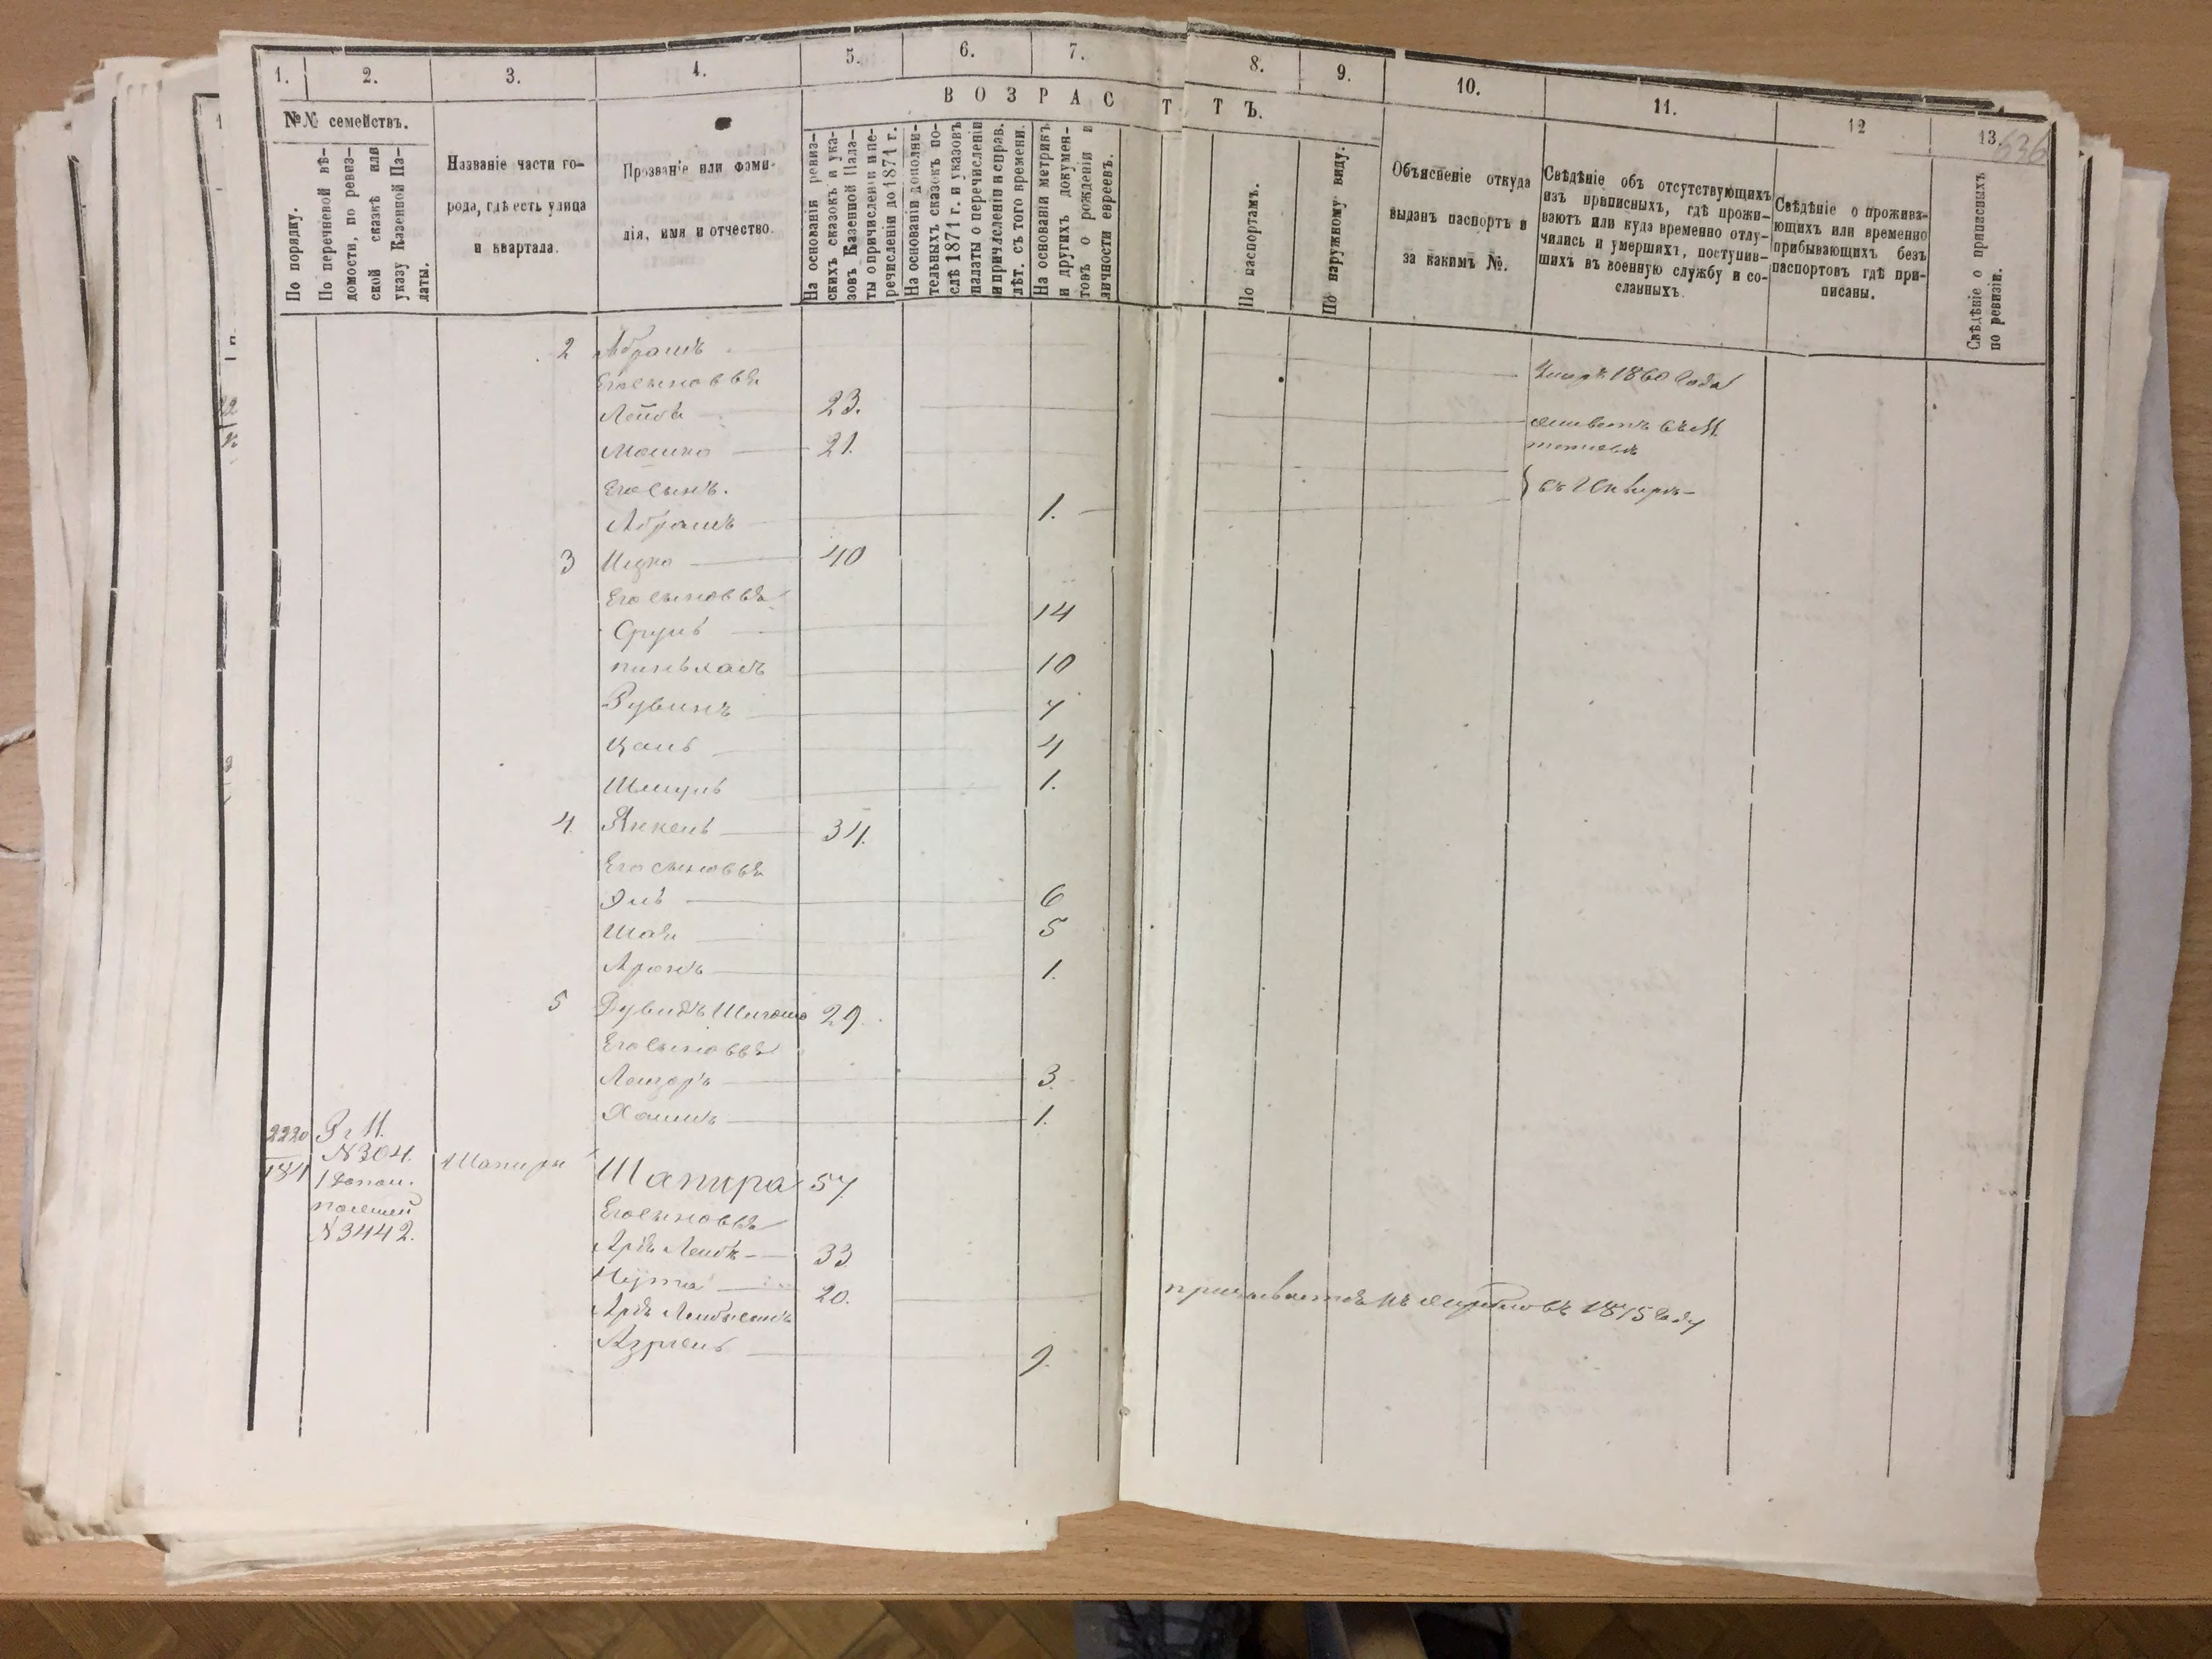 1. 2. 3. 4. 5. 6. 7. 8. 9. 10. 11. 12 13.
636
ВОЗРАСТ ТЪ.
№№ семействъ.
По порядку.
По перечневой вѣ-
домости, по ревиз-
ской сказкѣ или
указу Казенной Па-
латы.
Названіе части го-
рода, гдѣ есть улица
и квартала.
Прозваніе или фами-
лія, имя и отчество.
На основаніи ревиз-
скихъ сказокъ и ука-
зовъ Казенной Пала-
ты о причисленіи и пе-
речисленіи до 1871 г.
На основаніи дополни-
тельныхъ сказокъ по-
слѣ 1871 г. и указовъ
палаты о перечисленіи
и причисленіи и справ.
лѣт. съ того времени.
На основаніи метрикъ
и другихъ докумен-
товъ о рожденіи и
личности евреевъ.
По паспортамъ.
По наружному виду.
Объясненіе откуда
выданъ паспортъ и
за какимъ №.
Свѣдѣніе объ отсутствующихъ
изъ приписныхъ, гдѣ прожи-
ваютъ или куда временно отлу-
чились и умершихъ, поступив-
шихъ въ военную службу и со-
сланныхъ.
Свѣдѣніе о прожива-
ющихъ или временно
прибывающихъ безъ
паспортовъ гдѣ при-
писаны.
Свѣдѣніе о приписныхъ
по ревизіи.
2 Абрамъ Умеръ 1860 года
Его сыновья
Лейба 23.
Мошко 21.
Его сынъ.
Абрамъ 1.
3 Ицко 40
Его сыновья
Сруль 14
Пиньхасъ 10
Рувинъ 7
Цаль 4
Шмуль 1.
4. Янкель 34.
Его сыновья
Эль 6
Шая 5
Аронъ 1.
5 Дувидъ 29.
Его сыновья
Лейзоръ 3.
Хаимъ 1.
2220 №304.
184 Шапиры Шапира 57
№3442.
Его сыновья
Арія Лейба 33
Нута 20. призывается къ жеребью въ 1875 году
Азріель 9.